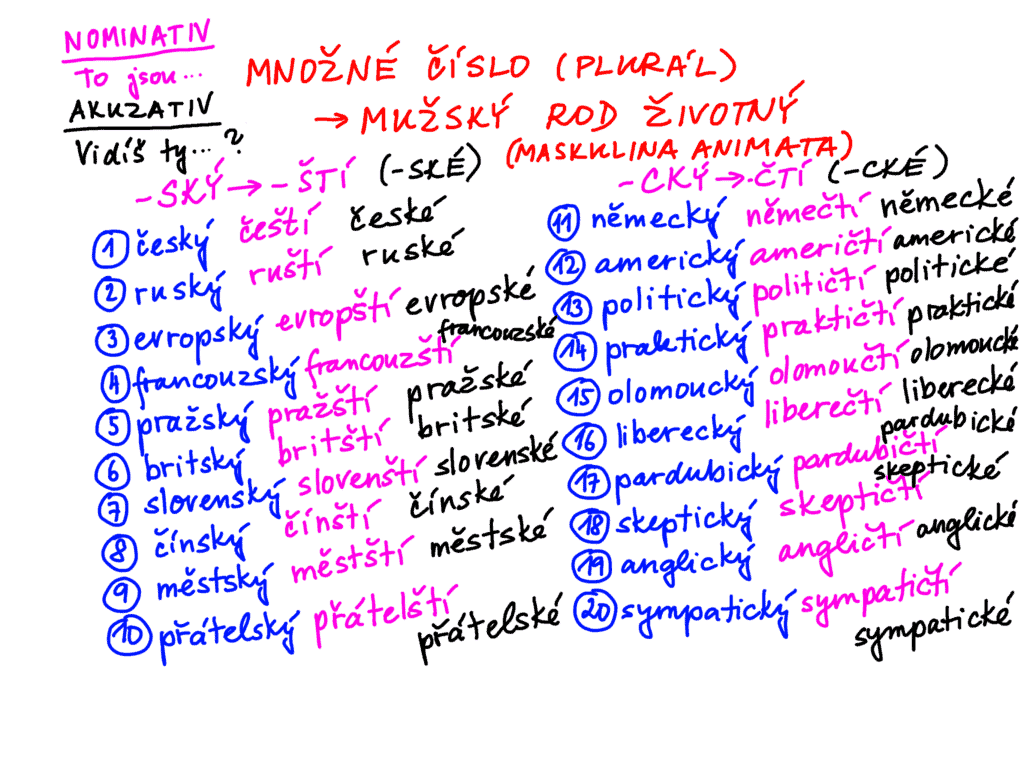 NOMINATIV
To jsou...
AKUZATIV
Vidíš ty... ?
MNOŽNÉ ČÍSLO (PLURÁL)
→ MUŽSKÝ ROD ŽIVOTNÝ
(MASKULINA ANIMATA)
-SKÝ → -ŠTÍ (-SKÉ)
1 český čeští české
2 ruský ruští ruské
3 evropský evropští evropské
4 francouzský francouzští francouzské
5 pražský pražští pražské
6 britský britští britské
7 slovenský slovenští slovenské
8 čínský čínští čínské
9 městský městští městské
10 přátelský přátelští přátelské
-CKÝ → -ČTÍ (-CKÉ)
11 německý němečtí německé
12 americký američtí americké
13 politický političtí politické
14 praktický praktičtí praktické
15 olomoucký olomoučtí olomoucké
16 liberecký liberečtí liberecké
17 pardubický pardubičtí pardubické
18 skeptický skeptičtí skeptické
19 anglický angličtí anglické
20 sympatický sympatičtí sympatické